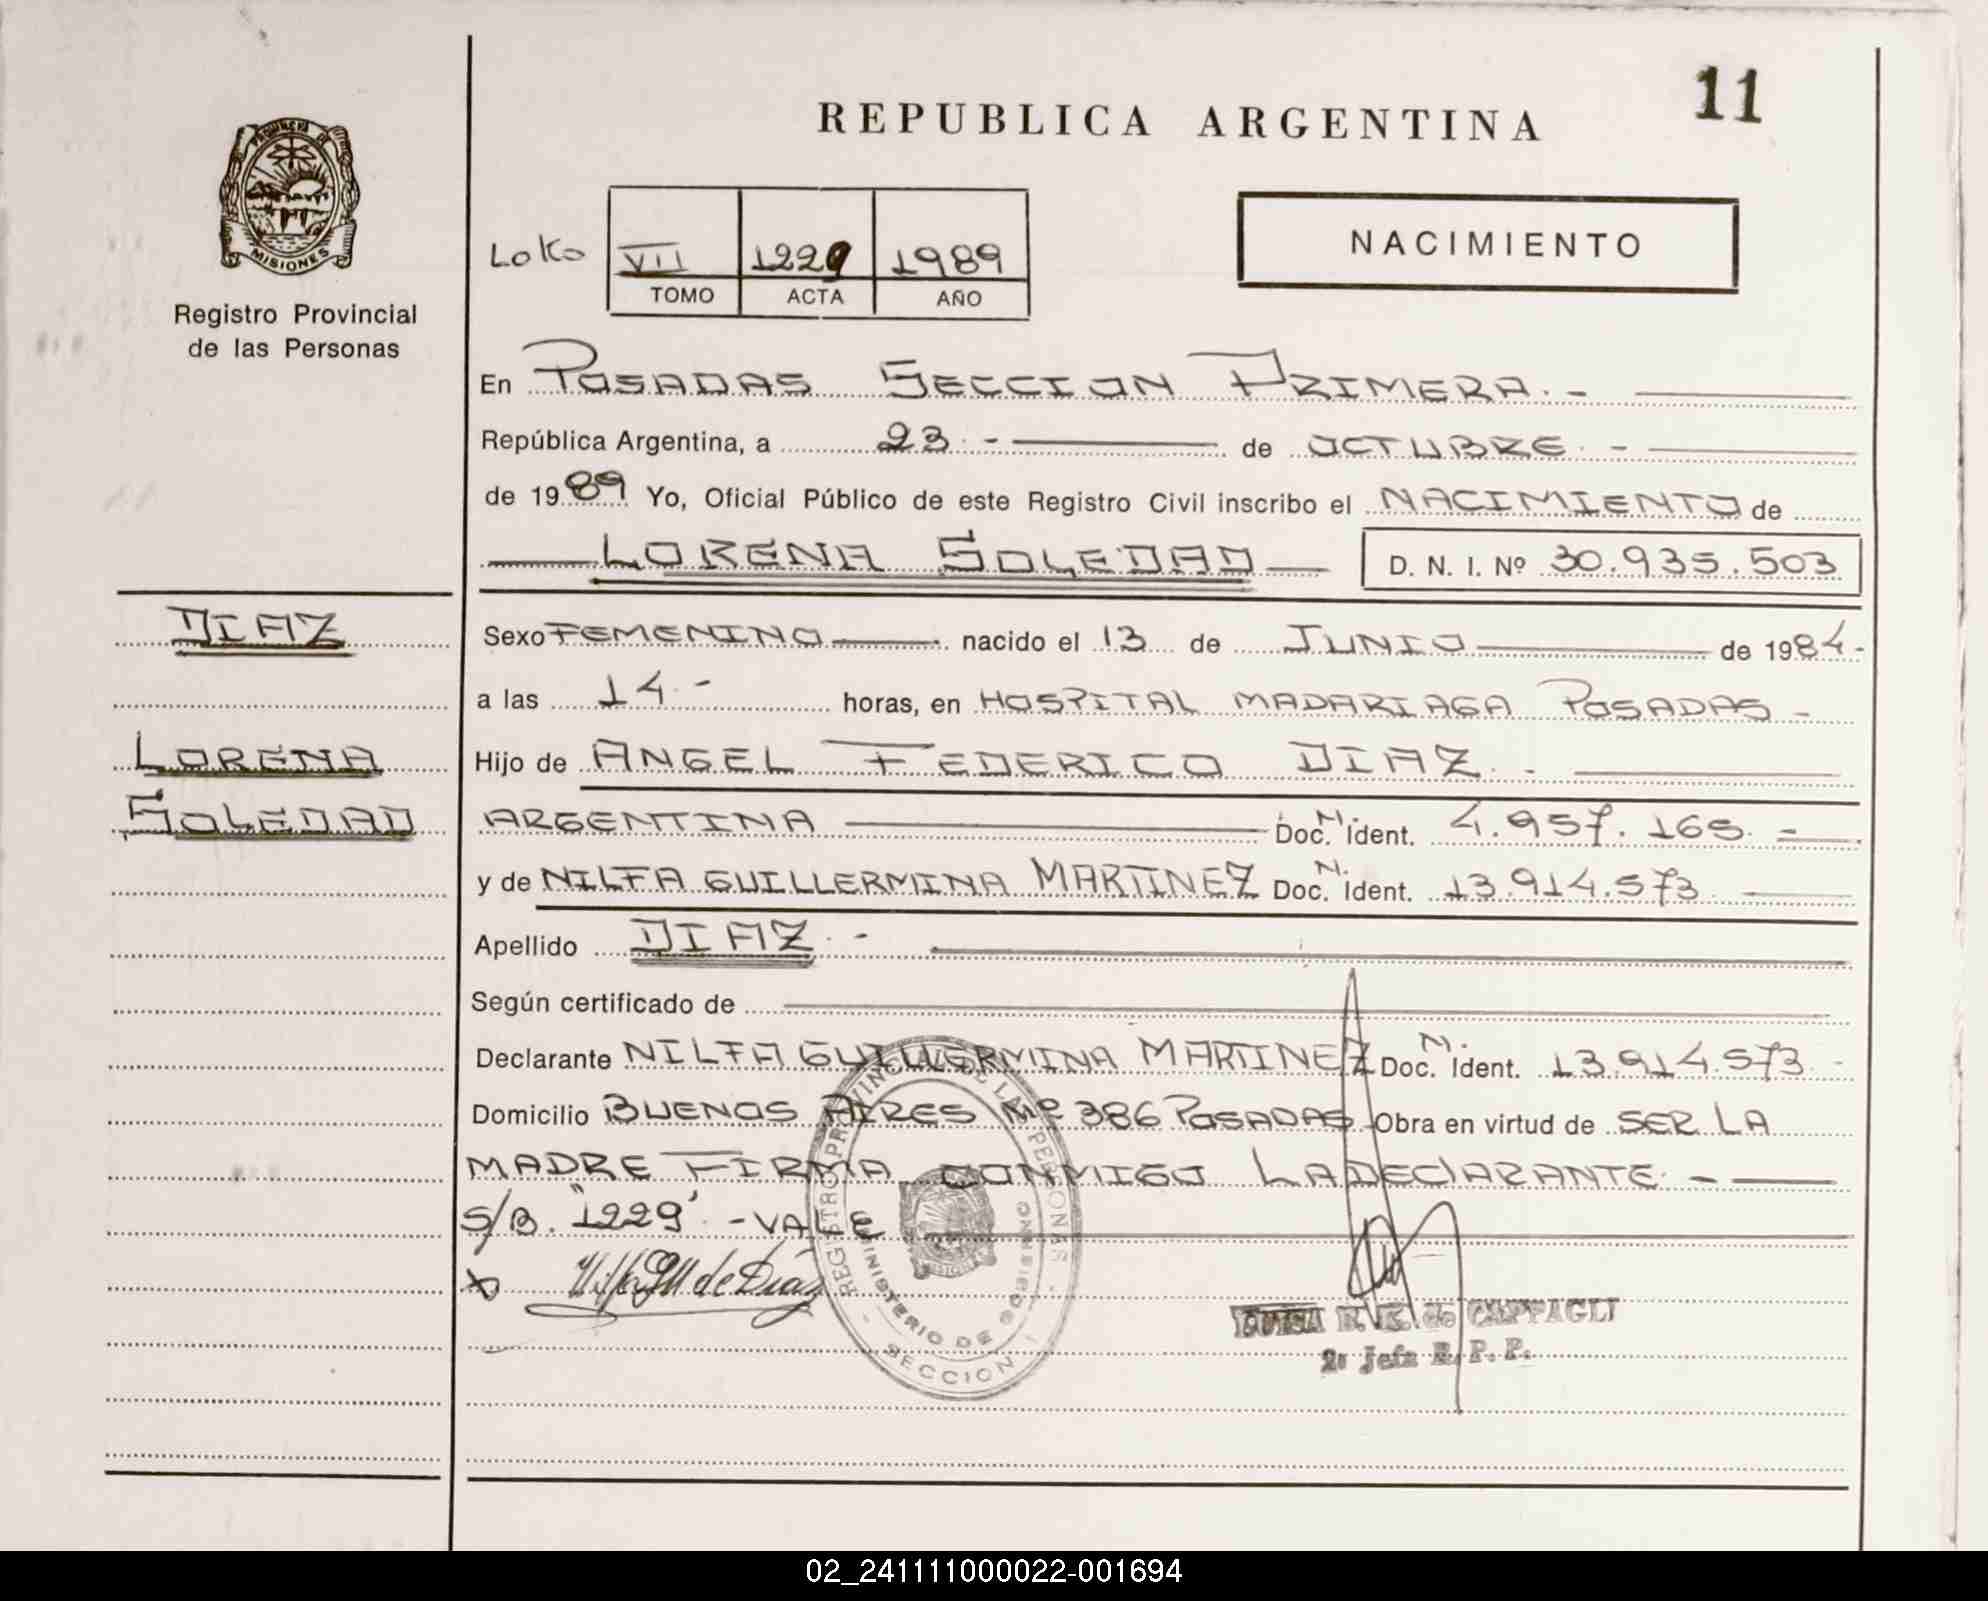 11
REPUBLICA ARGENTINA
PROVINCIA DE
MISIONES
Registro Provincial
de las Personas
VII 1229 1989
TOMO ACTA AÑO
NACIMIENTO
En POSADAS SECCION PRIMERA.-
República Argentina, a 23.- de OCTUBRE.-
de 1989 Yo, Oficial Público de este Registro Civil inscribo el NACIMIENTO de
LORENA SOLEDAD D. N. I. Nº 30.935.503
DIAZ
LORENA
SOLEDAD
Sexo FEMENINO nacido el 13 de JUNIO de 1984-
a las 14.- horas, en HOSPITAL MADARIAGA POSADAS-
Hijo de ANGEL FEDERICO DIAZ.-
ARGENTINA Doc. N. Ident. 4.957.165.-
y de NILFA GUILLERMINA MARTINEZ Doc. N. Ident. 13.914.573
Apellido DIAZ.-
Según certificado de
Declarante NILFA GUILLERMINA MARTINEZ Doc. N. Ident. 13.914.573.-
Domicilio BUENOS AIRES Nº 386 POSADAS Obra en virtud de SER LA
MADRE FIRMA CONMIGO LA DECLARANTE.-
S/B. "1229".-VALE
x Nilfa GM de Díaz
REGISTRO PROVINCIAL DE LAS PERSONAS
MINISTERIO DE GOBIERNO
MISIONES
- SECCION 1 -
LUISA de CAPPAGLI
2ª Jefa R. P. P.
02_241111000022-001694